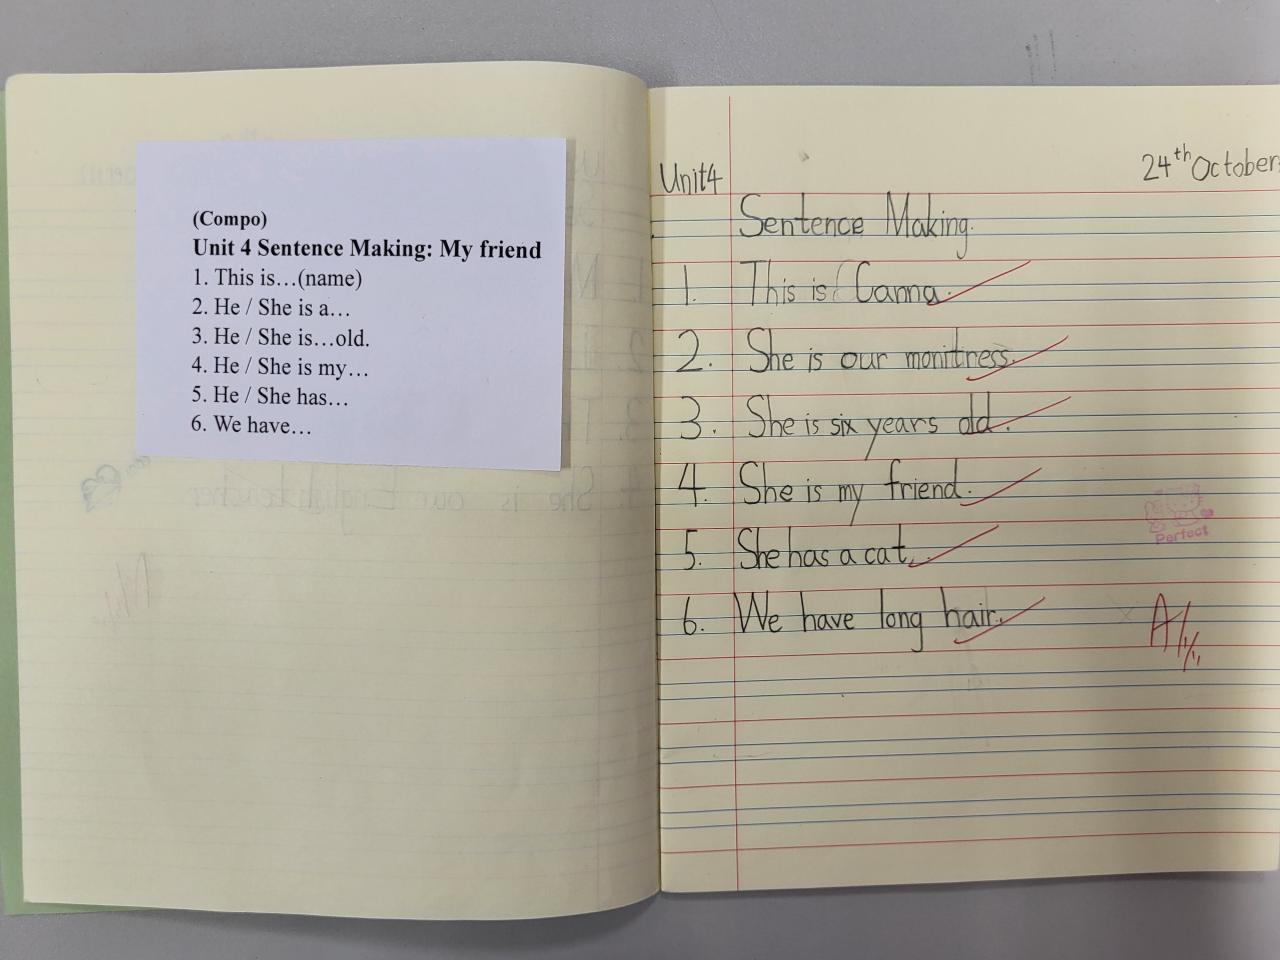 (Compo)
Unit 4 Sentence Making: My friend
1. This is…(name)
2. He / She is a…
3. He / She is…old.
4. He / She is my…
5. He / She has…
6. We have…
Unit4
24th October
Sentence Making.
1. This is Canna.
2. She is our monitress.
3. She is six years old.
4. She is my friend.
5. She has a cat.
6. We have long hair.
Perfect
A
She is our English teacher